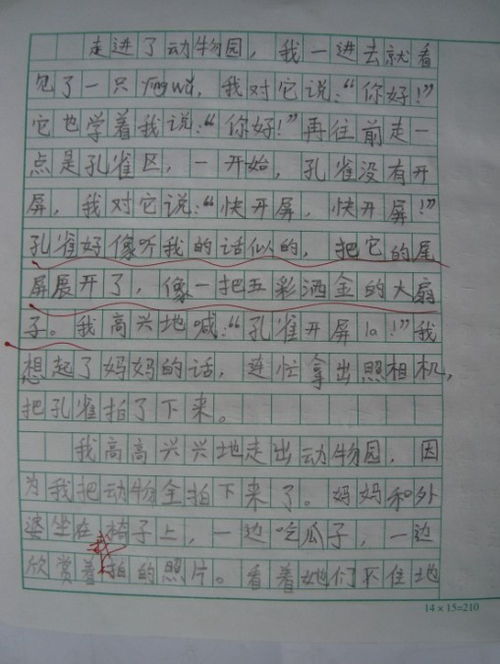 走进了动物园，我一进去就看
见了一只yīngwǔ，我对它说：“你好！”
它也学着我说：“你好！”再往前走一
点是孔雀区，一开始，孔雀没有开
屏，我对它说：“快开屏，快开屏！”
孔雀好像听我的话似的，把它的尾
屏展开了，像一把五彩洒金的大扇
子。我高兴地喊：“孔雀开屏la！”我
想起了妈妈的话，连忙拿出照相机，
把孔雀拍了下来。
我高高兴兴地走出动物园，因
为我把动物全拍下来了。妈妈和外
婆坐在椅子上，一边吃瓜子，一边
欣赏着拍的照片。看着她们不住地
14×15=210